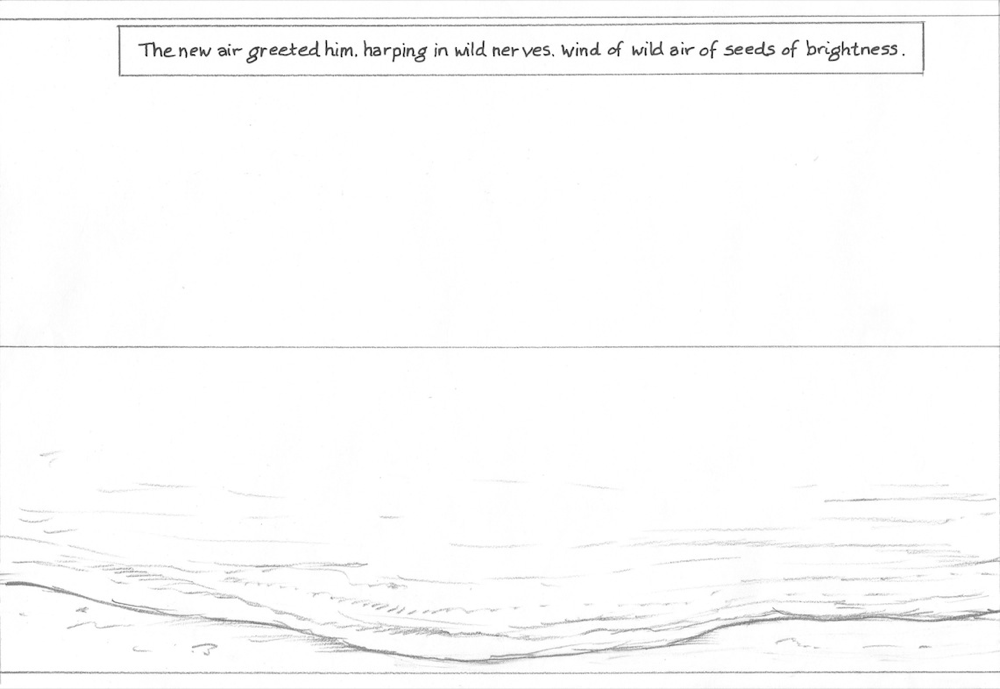 The new air greeted him. harping in wild nerves. wind of wild air of seeds of brightness.